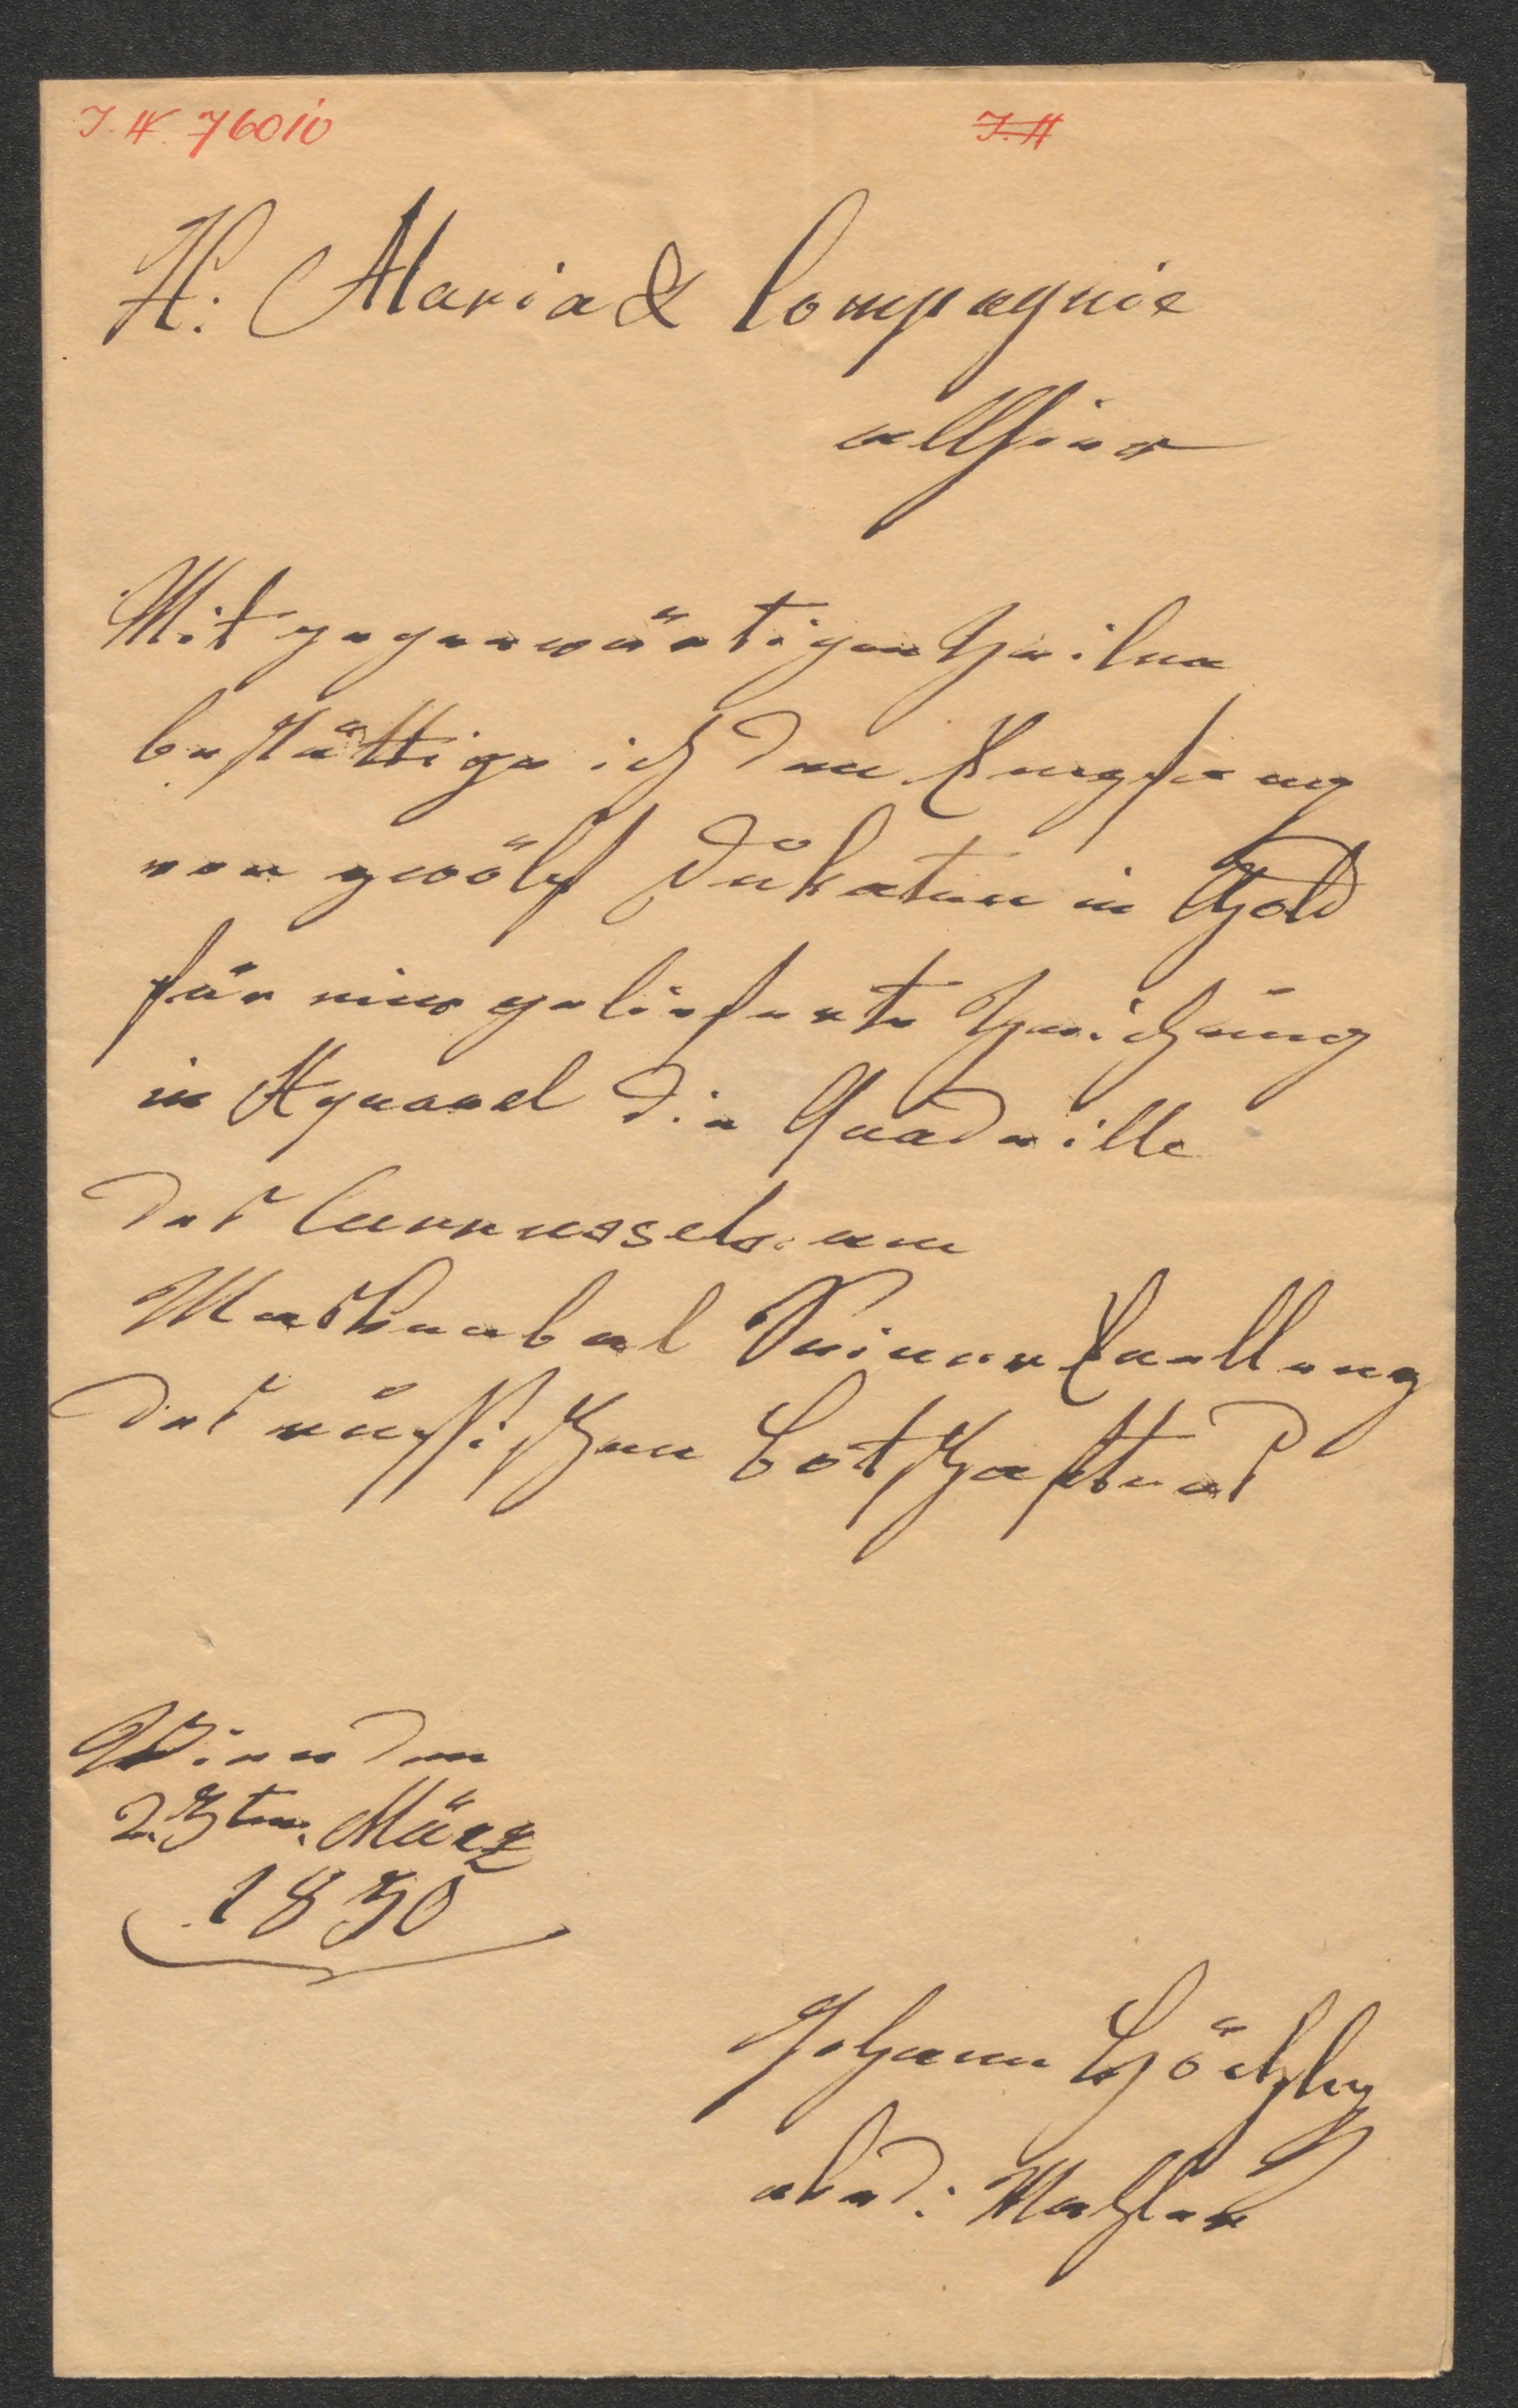 I. N. 76010
I. N
H: Maria & Compagnie
allhier
Mit gegenwärtigen Zeilen
bestättige ich den Empfang
von zwölf Dukaten in Gold
für eine gelieferte Zeichung
in Aquarel die Quadrille
des Carrussels. am
Maskenbal Seiner Exellenz
des rußischen Botschafters
Wien den
23ten. März
1830
Johann
akad: Mahler